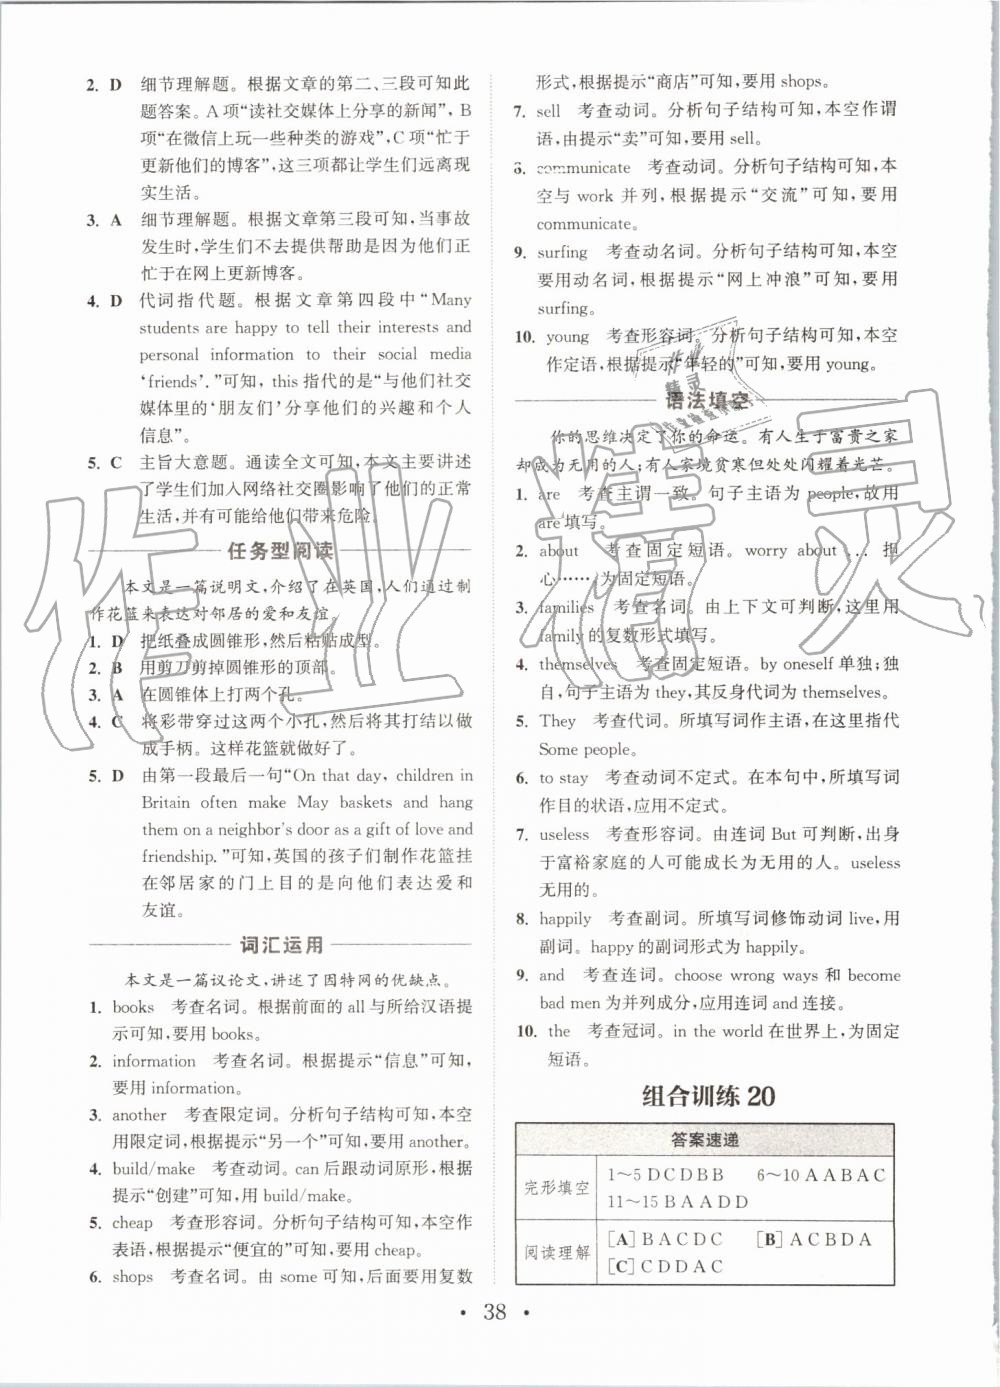 2. D 细节理解题。根据文章的第二、三段可知此
题答案。A 项“读社交媒体上分享的新闻”，B
项“在微信上玩一些种类的游戏”，C 项“忙于
更新他们的博客”，这三项都让学生们远离现
实生活。
3. A 细节理解题。根据文章第三段可知，当事故
发生时，学生们不去提供帮助是因为他们正
忙于在网上更新博客。
4. D 代词指代题。根据文章第四段中“Many
students are happy to tell their interests and
personal information to their social media
‘friends’.”可知，this 指代的是“与他们社交
媒体里的‘朋友们’分享他们的兴趣和个人
信息”。
5. C 主旨大意题。通读全文可知，本文主要讲述
了学生们加入网络社交圈影响了他们的正常
生活，并有可能给他们带来危险。
任务型阅读
本文是一篇说明文，介绍了在英国，人们通过制
作花篮来表达对邻居的爱和友谊。
1. D 把纸叠成圆锥形，然后粘贴成型。
2. B 用剪刀剪掉圆锥形的顶部。
3. A 在圆锥体上打两个孔。
4. C 将彩带穿过这两个小孔，然后将其打结以做
成手柄。这样花篮就做好了。
5. D 由第一段最后一句“On that day, children in
Britain often make May baskets and hang
them on a neighbor's door as a gift of love and
friendship.”可知，英国的孩子们制作花篮挂
在邻居家的门上目的是向他们表达爱和
友谊。
词汇运用
本文是一篇议论文，讲述了因特网的优缺点。
1. books 考查名词。根据前面的 all 与所给汉语提
示可知，要用 books。
2. information 考查名词。根据提示“信息”可知，
要用 information。
3. another 考查限定词。分析句子结构可知，本空
用限定词，根据提示“另一个”可知，要用 another。
4. build/make 考查动词。can 后跟动词原形，根据
提示“创建”可知，用 build/make。
5. cheap 考查形容词。分析句子结构可知，本空作
表语，根据提示“便宜的”可知，要用 cheap。
6. shops 考查名词。由 some 可知，后面要用复数
形式，根据提示“商店”可知，要用 shops。
7. sell 考查动词。分析句子结构可知，本空作谓
语，由提示“卖”可知，要用 sell。
8. communicate 考查动词。分析句子结构可知，本
空与 work 并列，根据提示“交流”可知，要用
communicate。
9. surfing 考查动名词。分析句子结构可知，本空
要用动名词，根据提示“网上冲浪”可知，要用
surfing。
10. young 考查形容词。分析句子结构可知，本空
作定语，根据提示“年轻的”可知，要用 young。
语法填空
你的思维决定了你的命运。有人生于富贵之家
却成为无用的人；有人家境贫寒但处处闪耀着光芒。
1. are 考查主谓一致。句子主语为 people，故用
are 填写。
2. about 考查固定短语。worry about ... 担
心……，为固定短语。
3. families 考查名词。由上下文可判断，这里用
family 的复数形式填写。
4. themselves 考查固定短语。by oneself 单独；独
自，句子主语为 they，其反身代词为 themselves。
5. They 考查代词。所填写词作主语，在这里指代
Some people。
6. to stay 考查动词不定式。在本句中，所填写词
作目的状语，应用不定式。
7. useless 考查形容词。由连词 But 可判断，出身
于富裕家庭的人可能成长为无用的人。useless
无用的。
8. happily 考查副词。所填写词修饰动词 live，用
副词。happy 的副词形式为 happily。
9. and 考查连词。choose wrong ways 和 become
bad men 为并列成分，应用连词 and 连接。
10. the 考查冠词。in the world 在世界上，为固定
短语。
组合训练 20
答案速递
完形填空 1～5 D C D B B 6～10 A A B A C
11～15 B A A D D
阅读理解 [A] B A C D C [B] A C B D A
[C] C D D A C
· 38 ·
作业精灵
作业
精灵